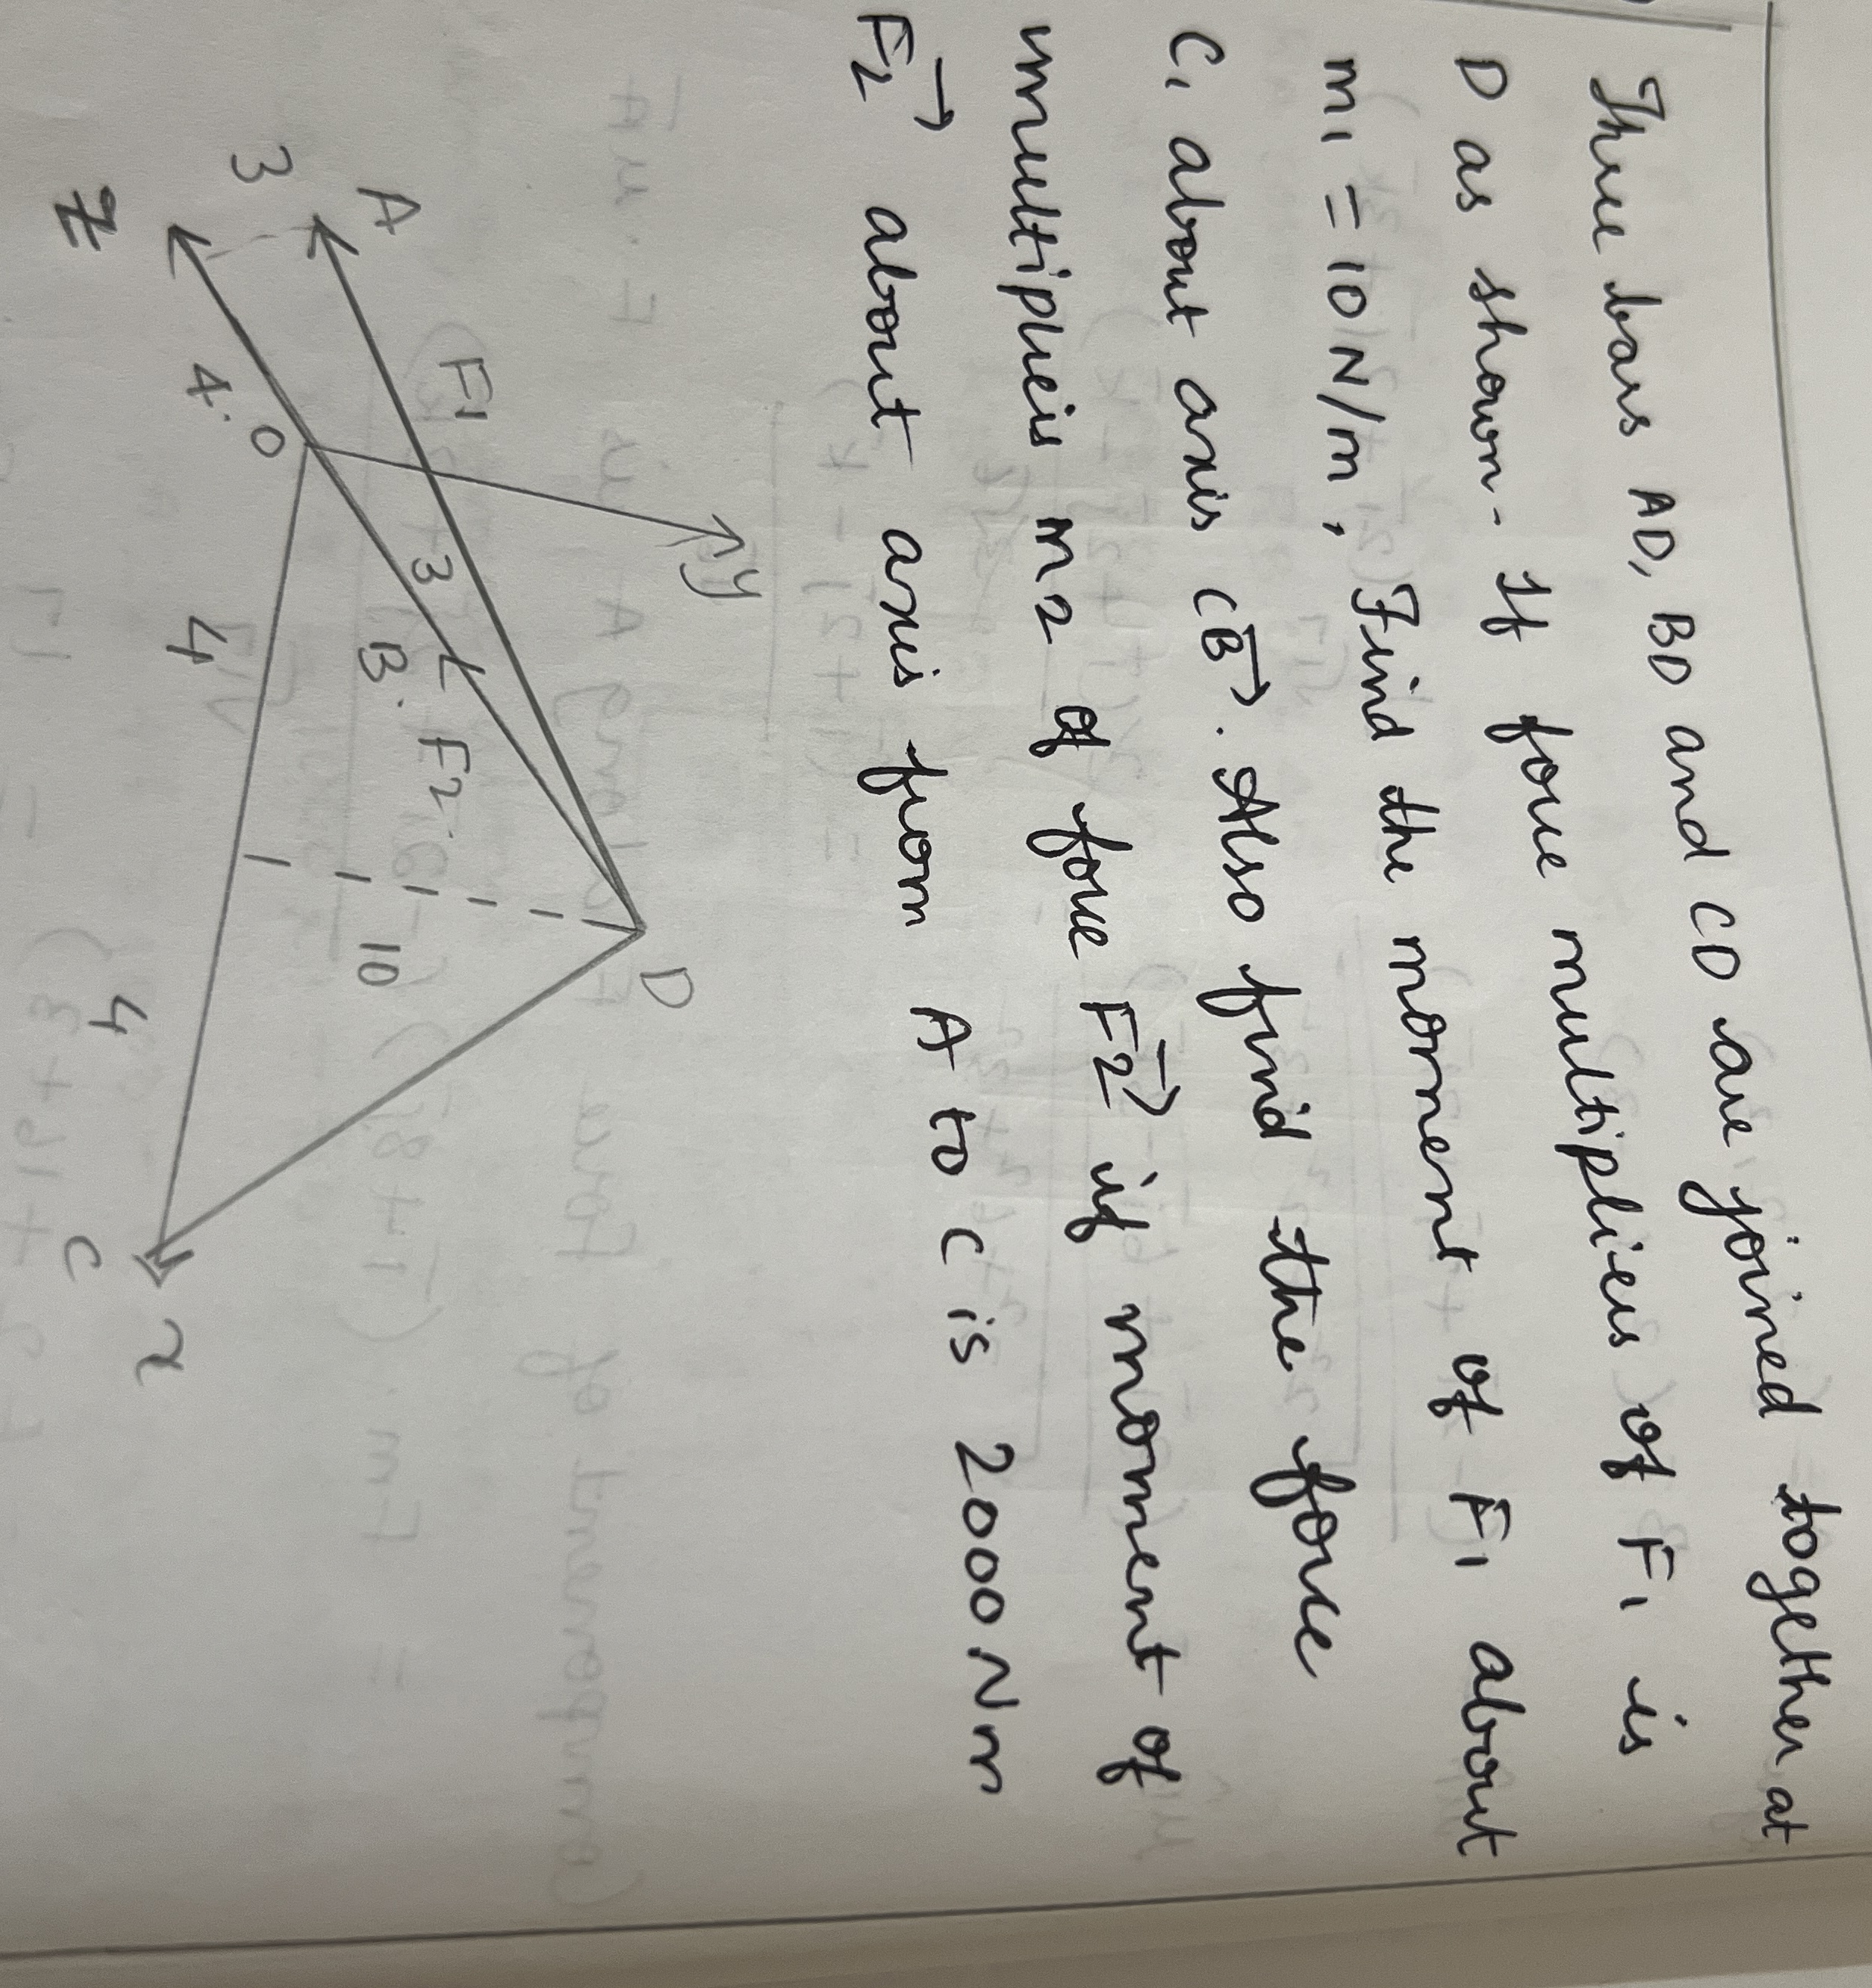 Three bars AD, BD and CD are joined together at
D as shown. If force multiplier of F1 is
m1 = 10 N/m, Find the moment of F1 about
C, about axis CB→. Also find the force
multiplier m2 of force F2→ if moment of
F2→ about axis from A to C is 2000 Nm
y
D
A
F1
3
F2.
10
B.
3
O
4.
4
4
Z
C
x